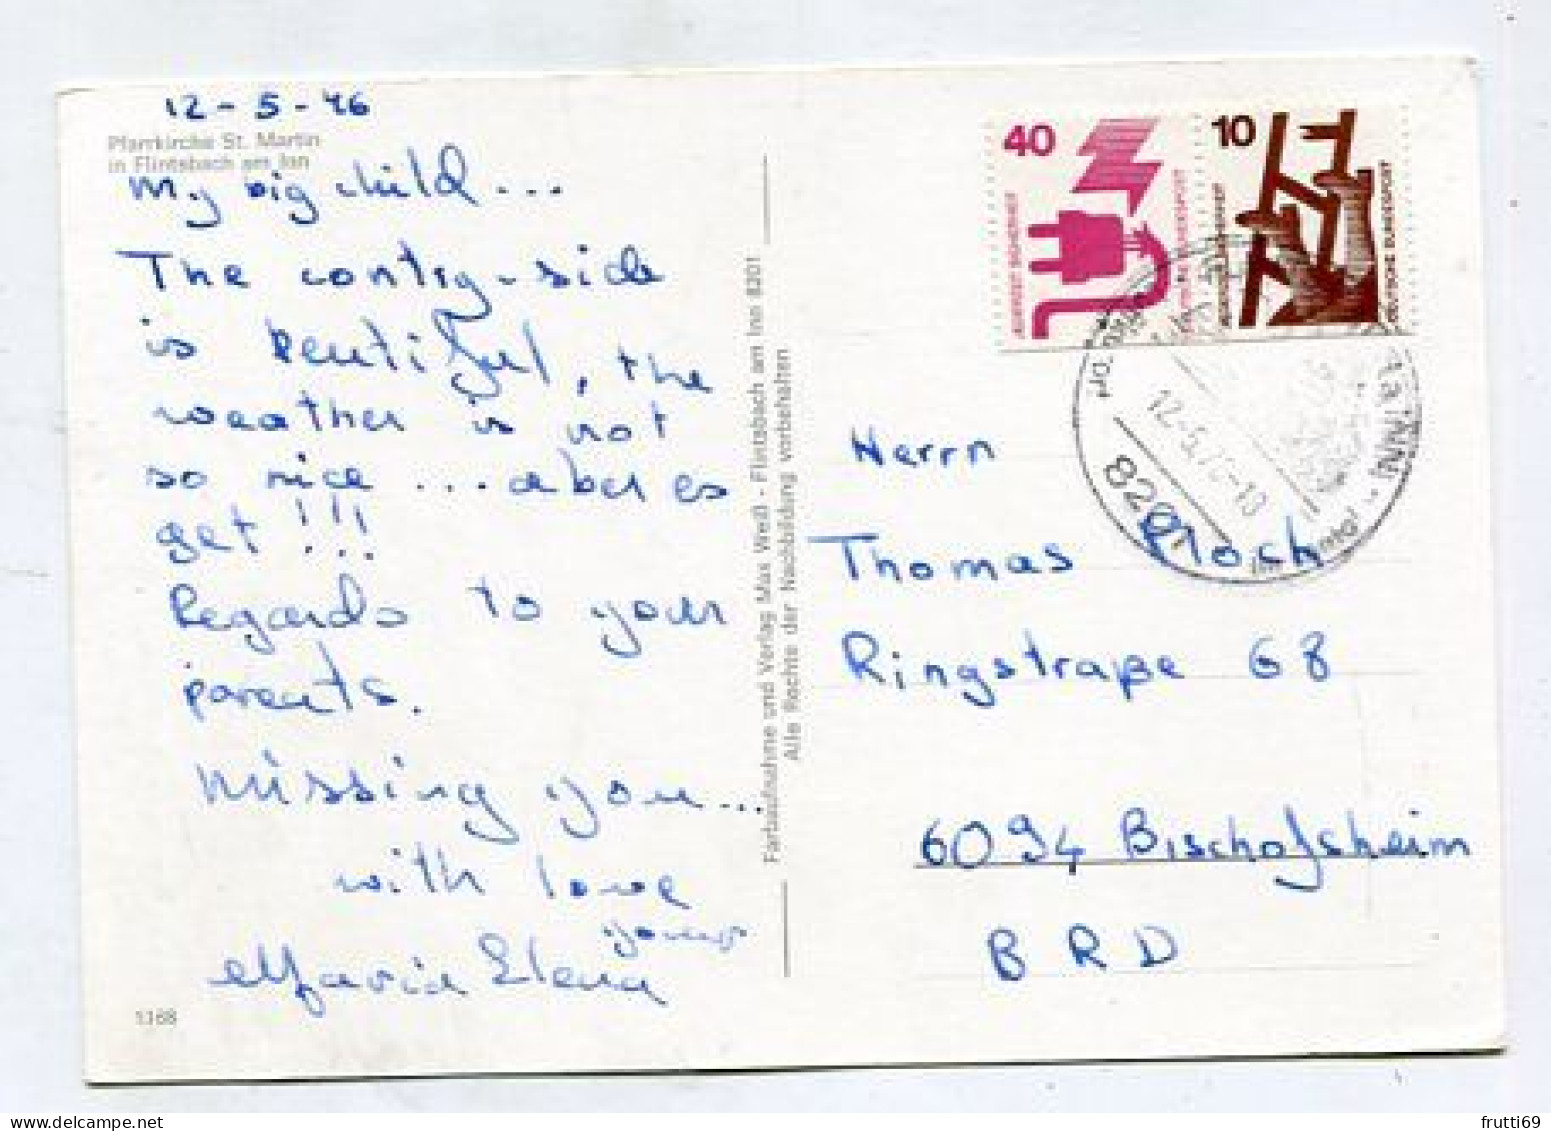 12-5-76
Pfarrkirche St. Martin
in Flintsbach am Inn
My big child...
The contry-side
is beutiful, the
weather is not
so nice ... aber es
get !!!
Regards to your
parents.
Missing you...
with love
yours
Maria Elena
1168
Farbaufnahme und Verlag Max Weiß - Flintsbach am Inn 8201
Alle Rechte der Nachbildung vorbehalten
40
JEDERZEIT SICHERHEIT
DEUTSCHE BUNDESPOST
10
JEDERZEIT SICHERHEIT
DEUTSCHE BUNDESPOST
8201
12-5.76-10
(INN)
Herrn
Thomas Moch
Ringstraße 68
6094 Bischofsheim
BRD
frutti69